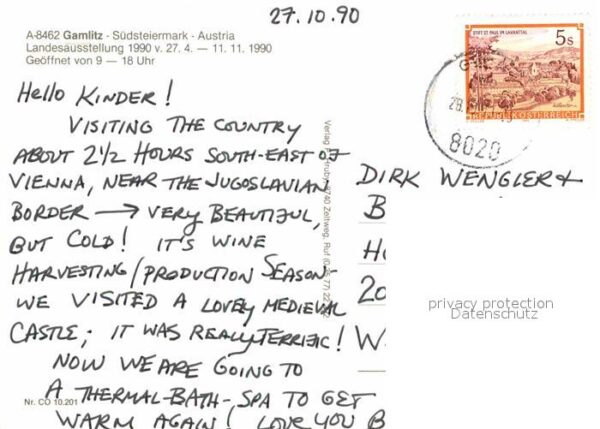 27.10.90
A-8462 Gamlitz - Südsteiermark - Austria
Landesausstellung 1990 v. 27. 4. — 11. 11. 1990
Geöffnet von 9 — 18 Uhr
Hello KINDER!
VISITING THE COUNTRY
ABOUT 2½ HOURS SOUTH-EAST OF
VIENNA, NEAR THE JUGOSLAVIAN
BORDER → VERY BEAUTIFUL,
BUT COLD! IT'S WINE
HARVESTING/PRODUCTION SEASON-
WE VISITED A LOVELY MEDIEVAL
CASTLE; IT WAS REALLY TERRIFIC!
NOW WE ARE GOING TO
A THERMAL-BATH-SPA TO GET
WARM AGAIN! LOVE YOU B
Nr. CO 10.201
Verlag 8740 Zeltweg, Ruf
STIFT ST. PAUL IM LAVANTTAL
5s
REPUBLIK ÖSTERREICH
8020
DIRK WENGLER +
B
H
20
W.
privacy protection
Datenschutz